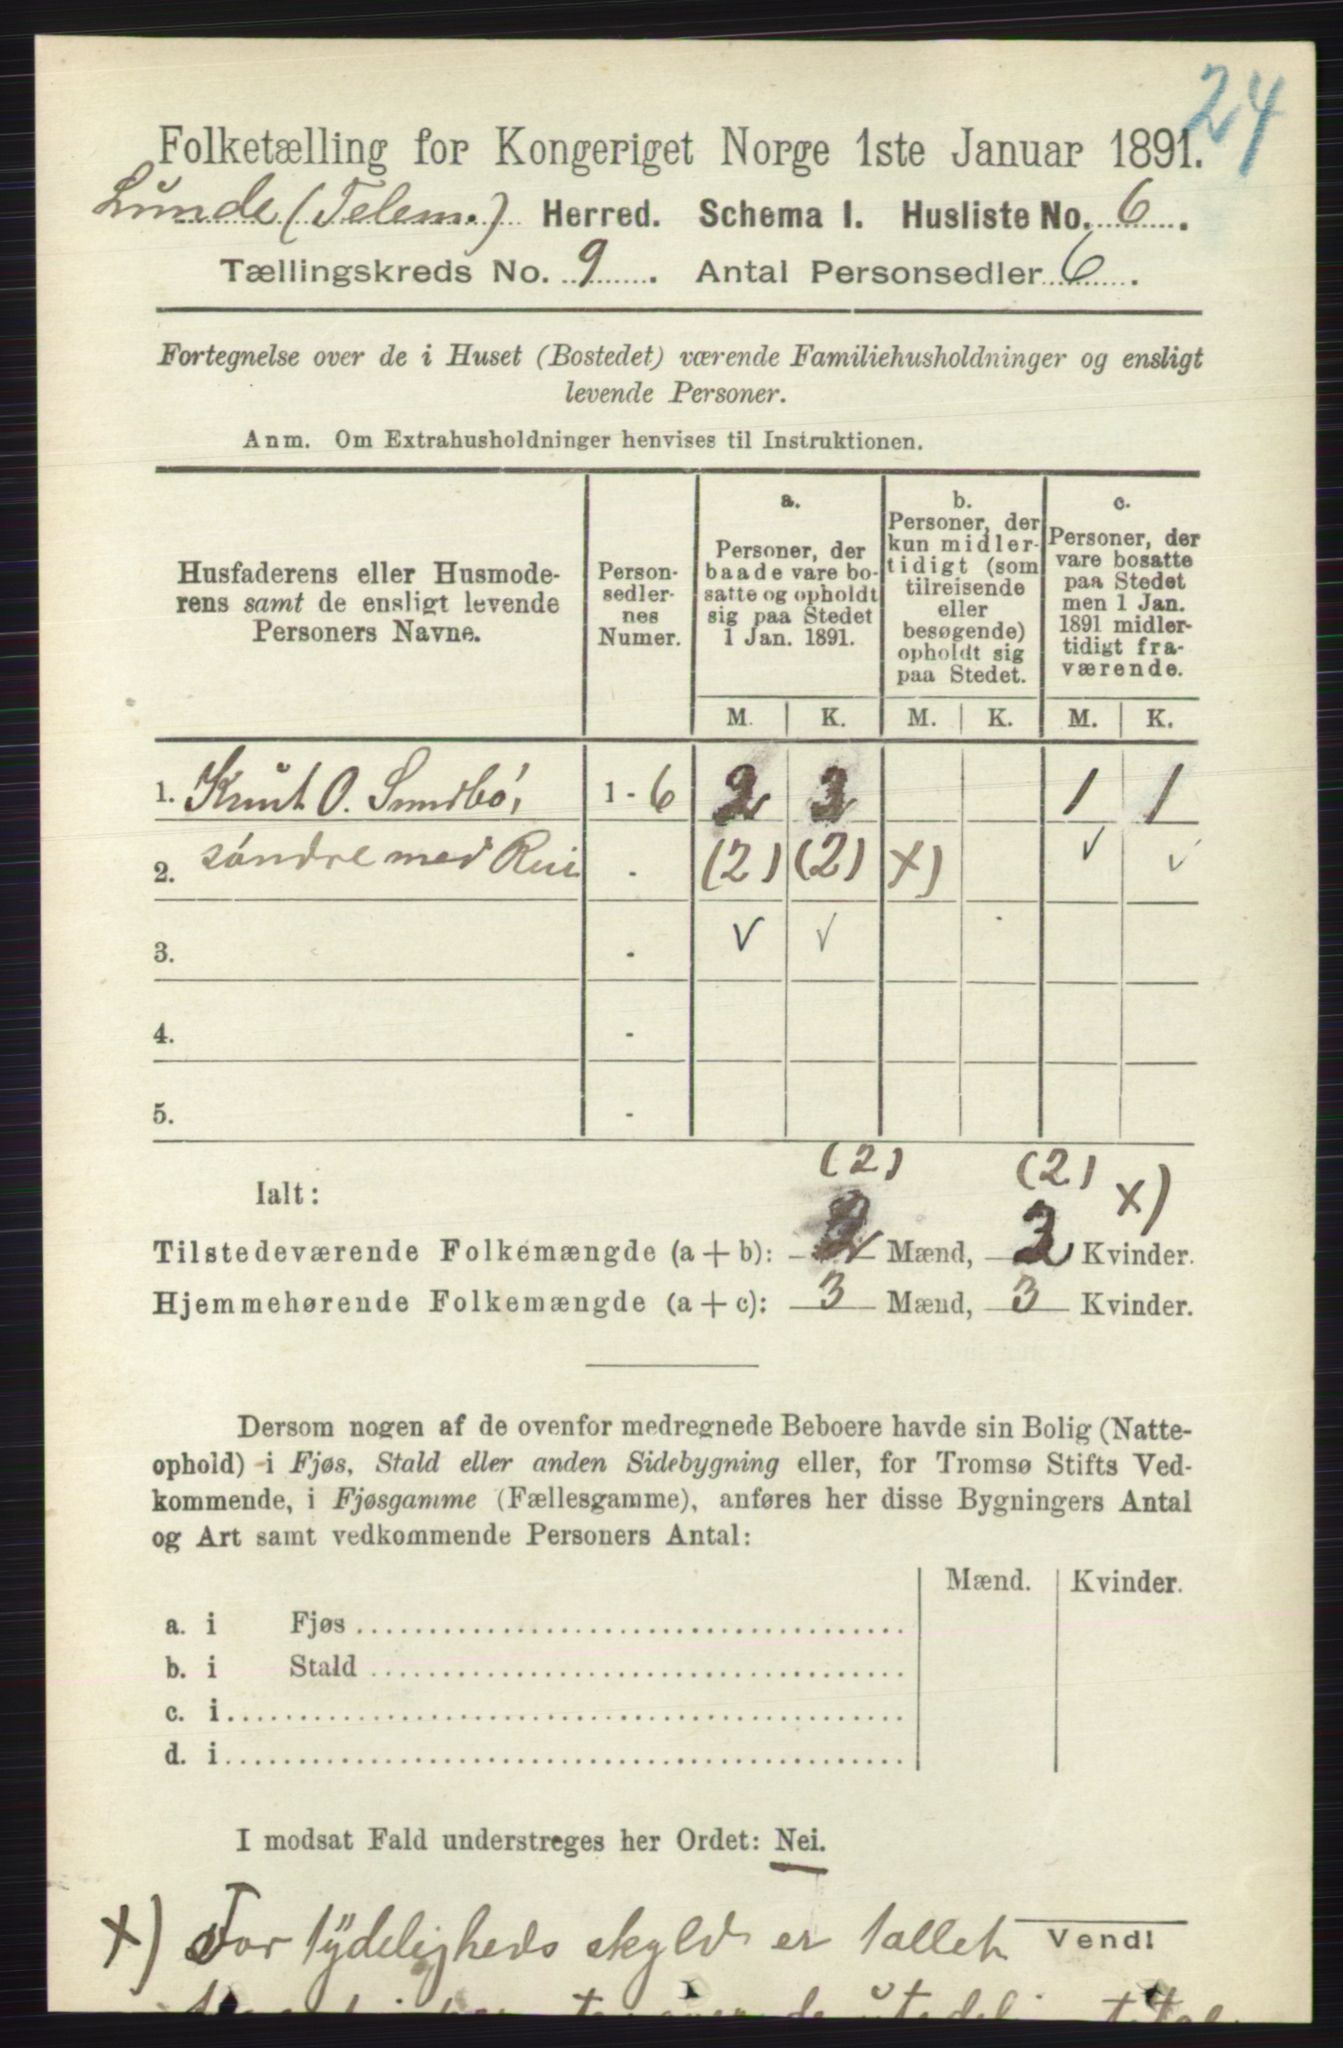 24
Folketælling for Kongeriget Norge 1ste Januar 1891.
Lunde (Telem.) Herred. Schema I. Husliste No. 6.
Tællingskreds No. 9. Antal Personsedler 6.
Fortegnelse over de i Huset (Bostedet) værende Familiehusholdninger og ensligt
levende Personer.
Anm. Om Extrahusholdninger henvises til Instruktionen.
Husfaderens eller Husmode-
rens samt de ensligt levende
Personers Navne.
Person-
sedler-
nes
Numer.
a.
Personer, der
baade vare bo-
satte og opholdt
sig paa Stedet
1 Jan. 1891.
b.
Personer, der
kun midler-
tidigt (som
tilreisende
eller
besøgende)
opholdt sig
paa Stedet.
c.
Personer, der
vare bosatte
paa Stedet
men 1 Jan.
1891 midler-
tidigt fra-
værende.
M. K. M. K. M. K.
1. Knut O. Sundbö, 1-6 2 2 1 1
2. söndre med Rui - (2) (2) x) ✓ ✓
3. - ✓ ✓
4. -
5. -
(2) (2) x)
Ialt:
Tilstedeværende Folkemængde (a + b): 2 Mænd, 2 Kvinder.
Hjemmehørende Folkemængde (a + c): 3 Mænd, 3 Kvinder.
Dersom nogen af de ovenfor medregnede Beboere havde sin Bolig (Natte-
ophold) i Fjøs, Stald eller anden Sidebygning eller, for Tromsø Stifts Ved-
kommende, i Fjøsgamme (Fællesgamme), anføres her disse Bygningers Antal
og Art samt vedkommende Personers Antal:
Mænd. Kvinder.
a. i Fjøs
b. i Stald
c. i
d. i
I modsat Fald understreges her Ordet: Nei.
x) For tydeligheds skyld er tallet
Vend!